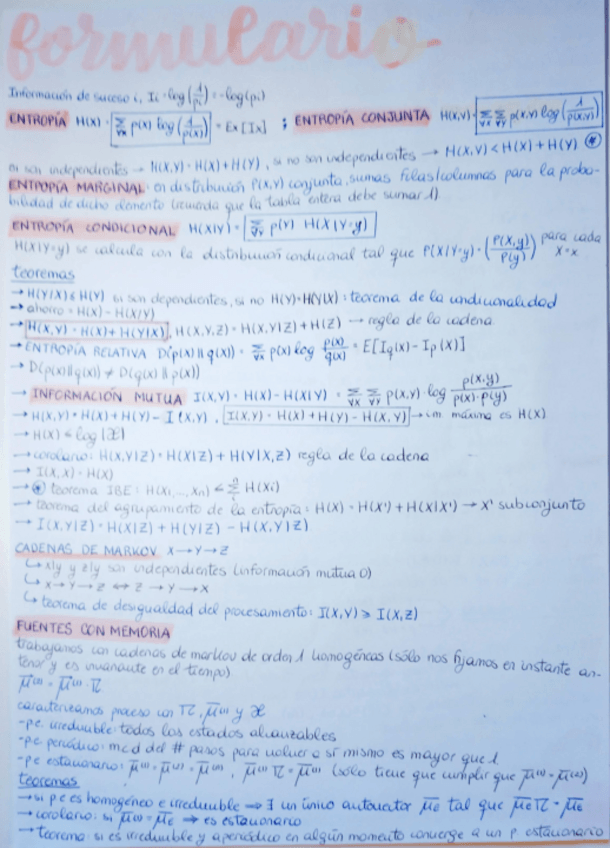 formulario
Información de suceso i, Ii = log(1/pi) = -log(pi)
ENTROPÍA H(X) = ∑∀x p(x) log(1/p(x)) = Ex[Ix] ; ENTROPÍA CONJUNTA H(X,Y) = ∑∀x ∑∀y p(x,y) log(1/p(x,y))
si son independientes → H(X,Y) = H(X) + H(Y), si no son independientes → H(X,Y) < H(X) + H(Y) ⊛
ENTROPÍA MARGINAL: en distribución P(X,Y) conjunta, sumas filas/columnas para la proba-
bilidad de dicho elemento (recuerda que la tabla entera debe sumar 1)
ENTROPÍA CONDICIONAL H(X|Y) = ∑∀y p(Y) H(X|Y=y)
H(X|Y=y) se calcula con la distribución condicional tal que P(X|Y=y) = (P(X,y)/P(y)) para cada X=x
teoremas
→ H(Y|X) ≤ H(Y) si son dependientes, si no H(Y) = H(Y|X) : teorema de la condicionalidad
→ ahorro = H(X) - H(X|Y)
→ H(X,Y) = H(X) + H(Y|X), H(X,Y,Z) = H(X,Y|Z) + H(Z) → regla de la cadena
→ ENTROPÍA RELATIVA D(p(x)||q(x)) = ∑∀x p(x) log p(x)/q(x) = E[Iq(x) - Ip(x)]
→ D(p(x)||q(x)) ≠ D(q(x)||p(x))
→ INFORMACIÓN MUTUA I(X,Y) = H(X) - H(X|Y) = ∑∀x ∑∀y p(x,y) · log p(x,y)/p(x)·p(y)
→ H(X,Y) = H(X) + H(Y) - I(X,Y), I(X,Y) = H(X) + H(Y) - H(X,Y) → im máxima es H(X)
→ H(X) ≤ log |𝒳|
→ corolario: H(X,Y|Z) = H(X|Z) + H(Y|X,Z) regla de la cadena
→ I(X,X) = H(X)
→ ⊛ teorema IBE: H(X1,...,Xn) ≤ ∑ H(Xi)
→ teorema del agrupamiento de la entropía: H(X) = H(X') + H(X|X') → X' subconjunto
→ I(X,Y|Z) = H(X|Z) + H(Y|Z) - H(X,Y|Z)
CADENAS DE MARKOV X→Y→Z
↳ x|y y z|y son independientes (información mutua 0)
↳ X→Y→Z ⟺ Z→Y→X
↳ teorema de desigualdad del procesamiento: I(X,Y) ≥ I(X,Z)
FUENTES CON MEMORIA
trabajamos con cadenas de markov de orden 1 homogéneas (sólo nos fijamos en instante an-
terior y es invariante en el tiempo)
caracterizamos proceso con
-p.e. irreducible: todos los estados alcanzables
-p.e. periódico: mcd del # pasos para volver a sí mismo es mayor que 1
-p.e. estacionario: (sólo tiene que cumplir que
teoremas
→ si p.e es homogéneo e irreducible ⇒ ∃ un único autovector μe tal que μe π = μe
→ corolario: si ⇒ es estacionario
→ teorema: si es irreducible y aperiódico en algún momento converge a un p. estacionario